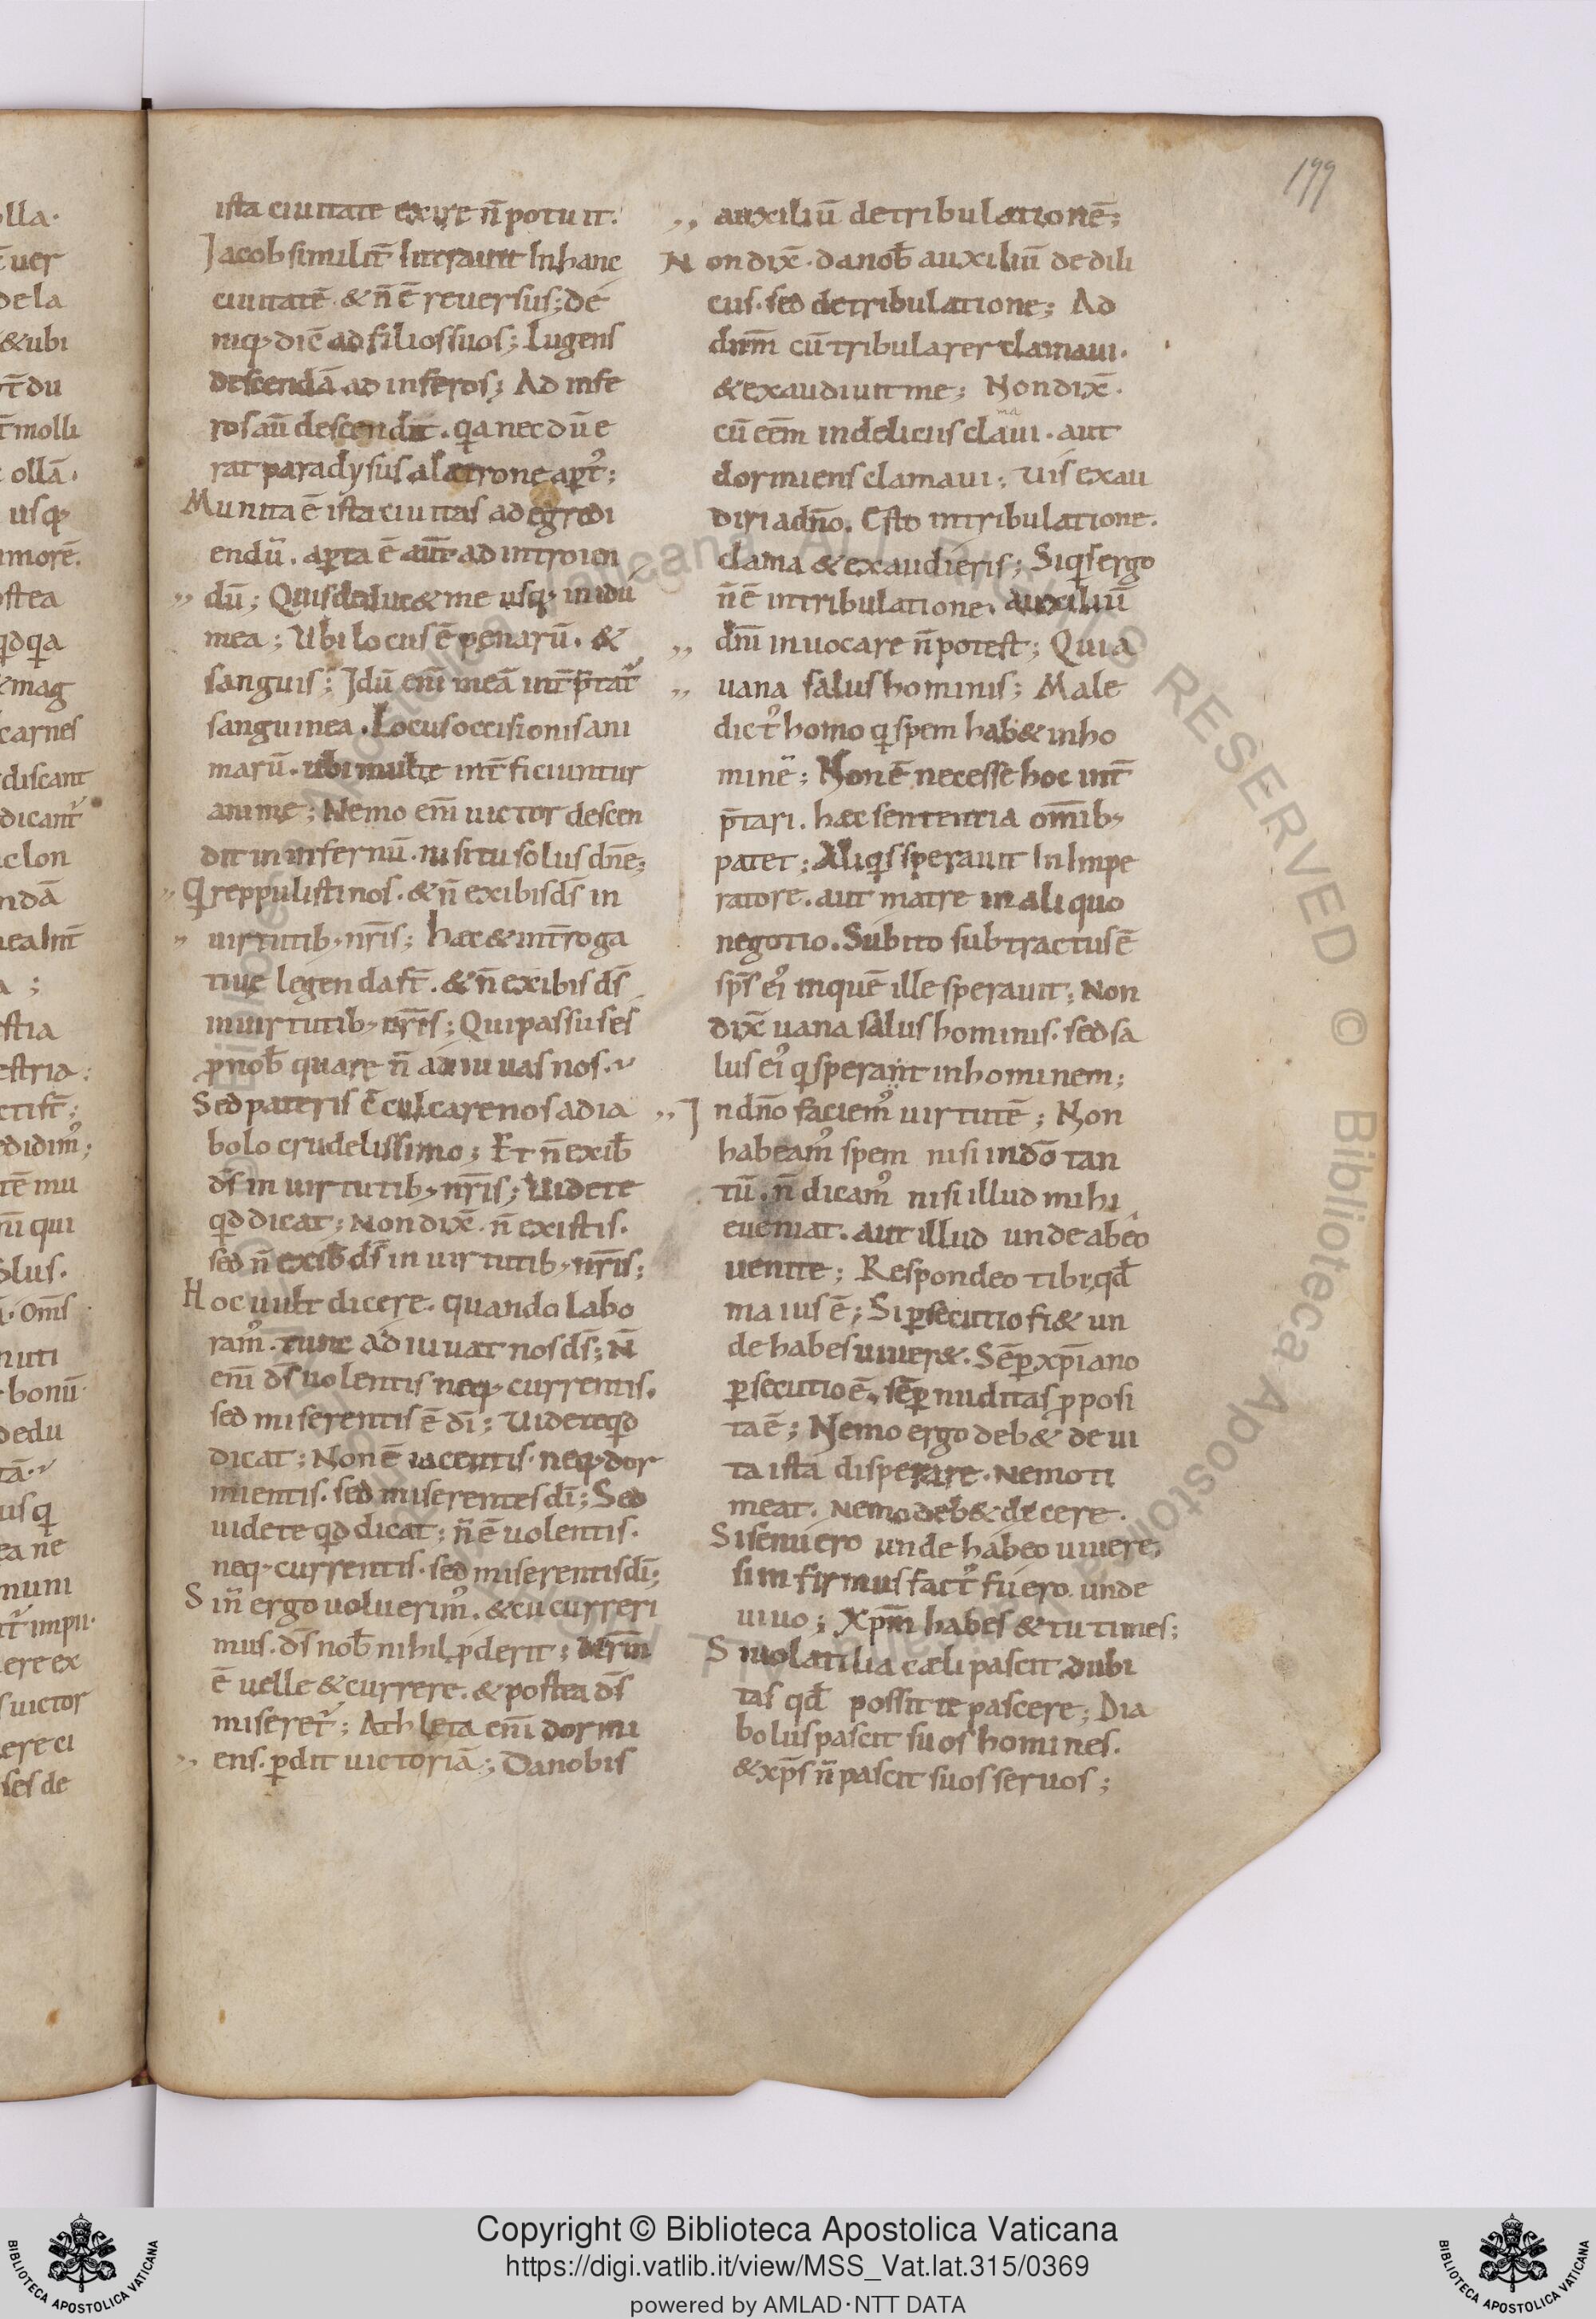 199
ista ciuitate exire n̄ potuit.
Jacob similit̄ Intrauit In hanc
ciuitatē. & n̄ ē reuersus; de
niq; dic̄ ad filios suos; Lugens
descendā ad inferos; Ad infe
ros aū descendit. q̄a nec dū e
rat paradysus a latrone apt᾽;
Munita ē ista ciuitas ad egredi
endū. apta ē aūt ad introien
,, dū; Quis deduc& me usq; in idu
mea; Ubi locus ē penarū. &
sanguis; Jdū enī meā int̄p̄tat᾽
sanguinea. Locus occisionis ani
marū. ubi multe int̄ficiuntur
anime; Nemo enī uictor descen
dit in infernū. nisi tu solus dn̄e;
,, Q̄ reppulisti nos. & n̄ exibis ds̄ in
,, uirtutib; nr̄is; haec & int̄roga
tiue legenda st̄. & n̄ exibis ds̄
in uirtutib; nr̄is; Qui passus es
p nob̄ quare n̄ adiuuas nos.
Sed pateris c̄culcare nos a dia
bolo crudelissimo; Et n̄ exib̄
ds̄ in uirtutib; nr̄is; Uidete
qd dicat; Non dix̄. n̄ existis.
sed n̄ exib̄ ds̄ in uirtutib; nr̄is;
Hoc uult dicere. quando labo
ram᾽. tunc adiuuat nos ds̄; N̄
enī ds̄ uolentis neq; currentis.
sed miserentis ē dī; Uidete qd
dicat; Non ē iacentis. neq; dor
mientis. sed miserentes dī; Sed
uidete qd dicat; n̄ ē uolentis.
neq; currentis. sed miserentis dī;
Si n̄ ergo uoluerim᾽. & cucurreri
mus. ds̄ nob̄ nihil pderit;
ē uelle & currere. & postea ds̄
miseret᾽; Athleta enī dormi
,, ens. pdit uictoriā; Da nobis
,, auxiliū de tribulationē;
Non dix̄. da nob̄ auxiliū de dili
cus. sed de tribulatione; Ad
dnm̄ cū tribularer clamaui.
& exaudiuit me; Non dix̄.
cū eēm in delicus claui. aut
ma
dormiens clamaui; Uis exau
diri a dn̄o. Esto in tribulatione.
clama & exaudieris; Siq̄s ergo
n̄ ē in tribulatione. auxiliū
,, dnī inuocare n̄ potest; Quia
,, uana salus hominis; Male
dict᾽ homo q̄ spem hab& in ho
minē; Non ē necesse hoc int̄
p̄tari. haec sententia omīb;
patet; Aliq̄s sperauit In Impe
ratore. aut matre in aliquo
negotio. Subito subtractus ē
sps̄ ei᾽ in quē ille sperauit; Non
dix̄ uana salus hominis. sed sa
lus ei᾽ q̄ sperant in hominem;
,, Jn dn̄o faciem᾽ uirtutē; Non
habeam᾽ spem nisi in dō tan
tū. n̄ dicam᾽ nisi illud mihi
eueniat. aut illud unde abeo
uenite; Respondeo tibi, qd̄
maius ē; Si psecutio fi& un
de habes uiuere. Sēp xpīano
psecutio ē, sēp nuditas pposi
ta ē; Nemo ergo deb& de ui
ta ista disperare. nemo ti
meat. nemo deb& dicere.
Si senuero unde habeo uiuere,
si infirmus fact᾽ fuero. unde
uiuo; Xpm̄ habes & tu times;
Si uolatilia caeli pascit dubi
tas qd̄ possit te pascere; Dia
bolus pascit suos homines.
& xps̄ n̄ pascit suos seruos;
lla.
uer
de la
& ubi
du
molli
ollā.
usq;
morē.
stea
qd q̄a
& mag
carnes
discant
dicant᾽
clon
ndā
;
stia
estria;
edidim᾽;
tē mu
nī qui
olus.
Oms̄
nuti
bonū
dedu
tā.
us q̄
ea ne
muni
impii.
ere ex
s uictor
ere ci
ses de
Copyright © Biblioteca Apostolica Vaticana
https://digi.vatlib.it/view/MSS_Vat.lat.315/0369
powered by AMLAD·NTT DATA
BIBLIOTECA APOSTOLICA VATICANA
BIBLIOTECA APOSTOLICA VATICANA